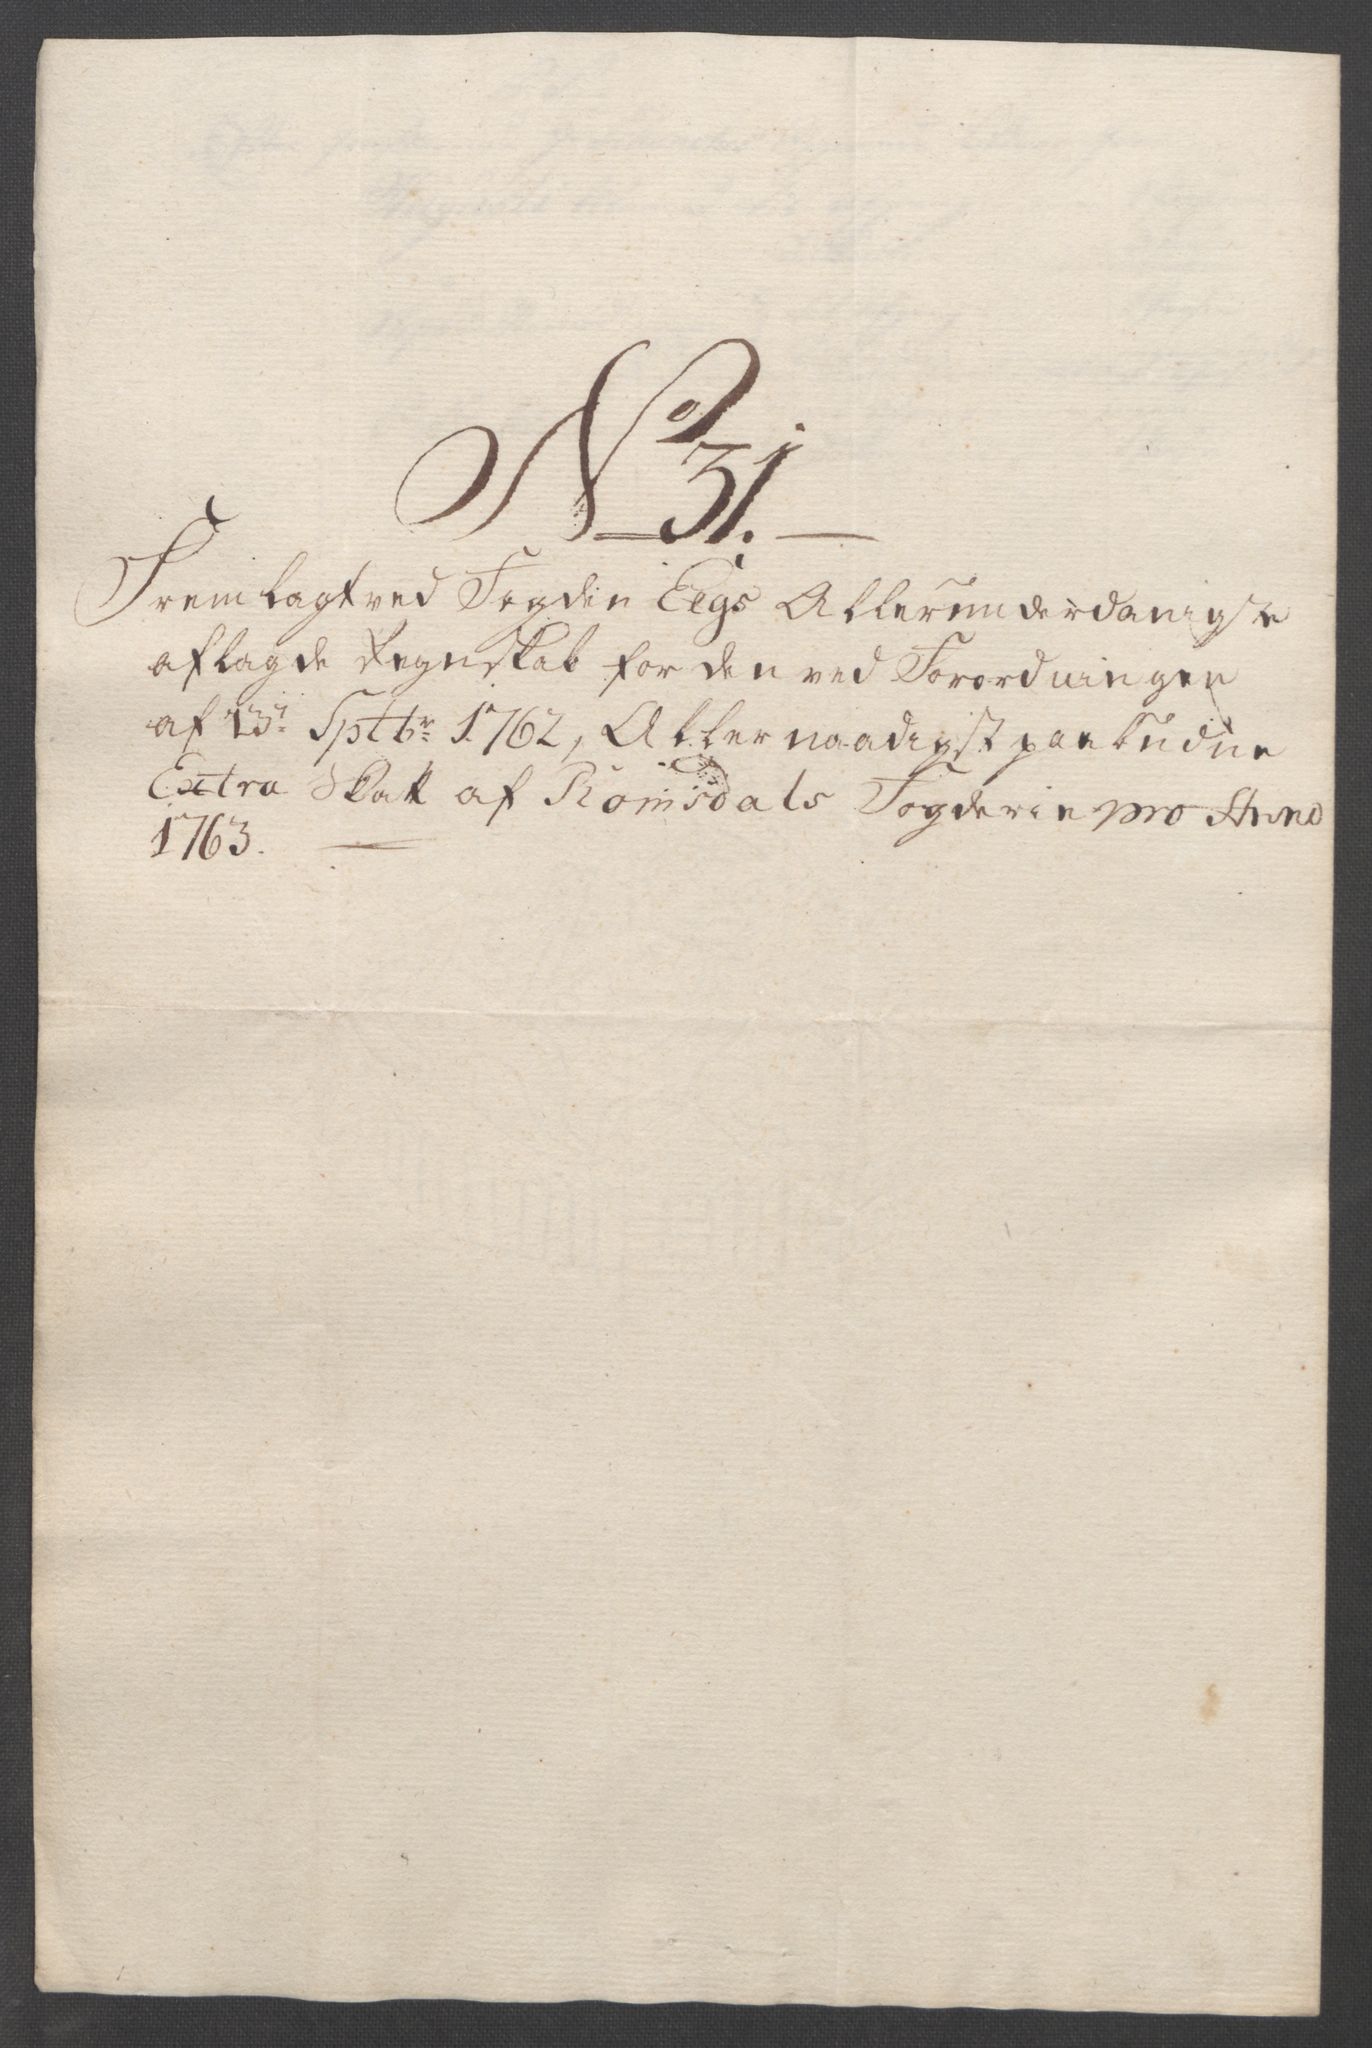 No 31.
Fremlagt ved Fogden Elgs Allerunderdanigste
aflagde Regnskab for den ved Forordningen
af 23: Sptbr: 1762, Allernaadigst paabudne
Extra Skatt af Romsdals Fogderie pro Anno
1763.